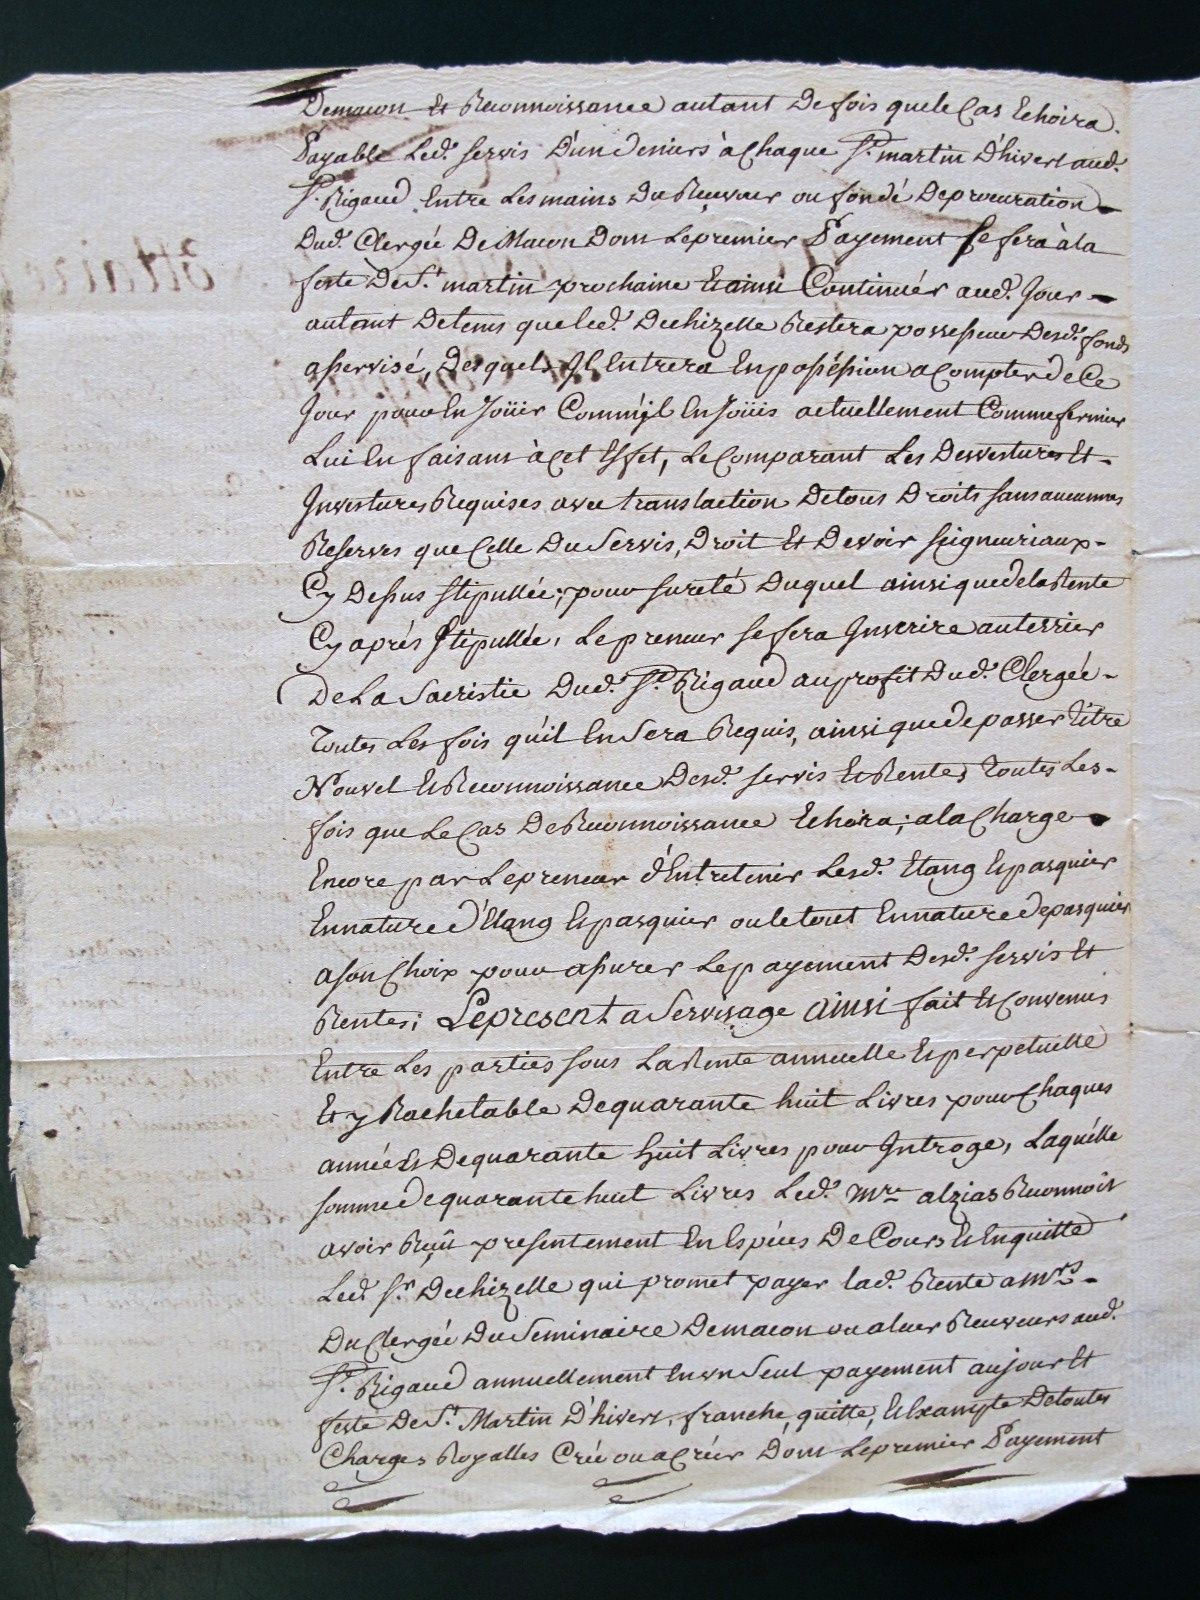 Demacon Et Reconnoissance autant De fois que le Cas Echoira.
Payable Led. servis D'un deniers à Chaque St. martin D'hivert aud.
St. Rigaud Entre Les mains Du Receveur ou fondé De procuration
Dud. Clergée De Macon Dont Le premier Payement se fera à la
feste De St. martin prochaine Et ainsi Continuér aud. Jour
autant De tems que led. Dechizelle Restera possesseur Desd. fonds
asservisé, Desquels Jl Entrera En posséssion a Compter de Ce
Jour pour En Joüir Comm'jl En Joüis actuellement Comme fermier
Lui En faisant à Cet Effet, Le Comparant Les Devestures Et
Jnvestures Requises avec translaction De tous Droits sans aucunnes
Reserves que Celle Du Servis, Droit Et Devoir seigneuriaux
Cy Dessus stipullée; pour sureté Duquel ainsi que de la Rente
Cy aprés stipullée, Le preneur se fera Jnscrire au terrier
De La Sacristie Dud. St. Rigaud au profit Dud. Clergée
Toutes Les fois qu'il En Sera Requis, ainsi que de passer Titre
Nouvel Et Reconnoissance Desd. servis Et Rentes Toutes Les
fois que Le Cas De Reconnoissance Echoira; a la Charge
Encore par Le preneur d'Entretenir Lesd. Etang Et pasquier
En nature d'Etang Et pasquier ou le tout En nature de pasquier
a son Choix pour assurer Le payement Desd. servis Et
Rentes; Le present a Servisage ainsi fait Et Convenus
Entre Les parties sous La Rente annuelle Et perpetuelle
Et y Rachetable De quarante huit Livres pour Chaques
année Et De quarante huit Livres pour Introge, Laquélle
somme de quarante huit Livres Led. Mre alzias Reconnoit
avoir Reçüt presentement En Espéces De Cours Et En quitte
Led. Sr. Dechizelle qui promet payer lad. Rente a Mrs
Du Clergée Du Seminaire Demacon ou a leur Receveurs aud.
St. Rigaud annuellement En un Seul payement au jour Et
feste De St. Martin D'hivert, franche, quitte, Et Exampte De toutes
Charges Royalles Crée ou a Créer Dont Le premier Payement